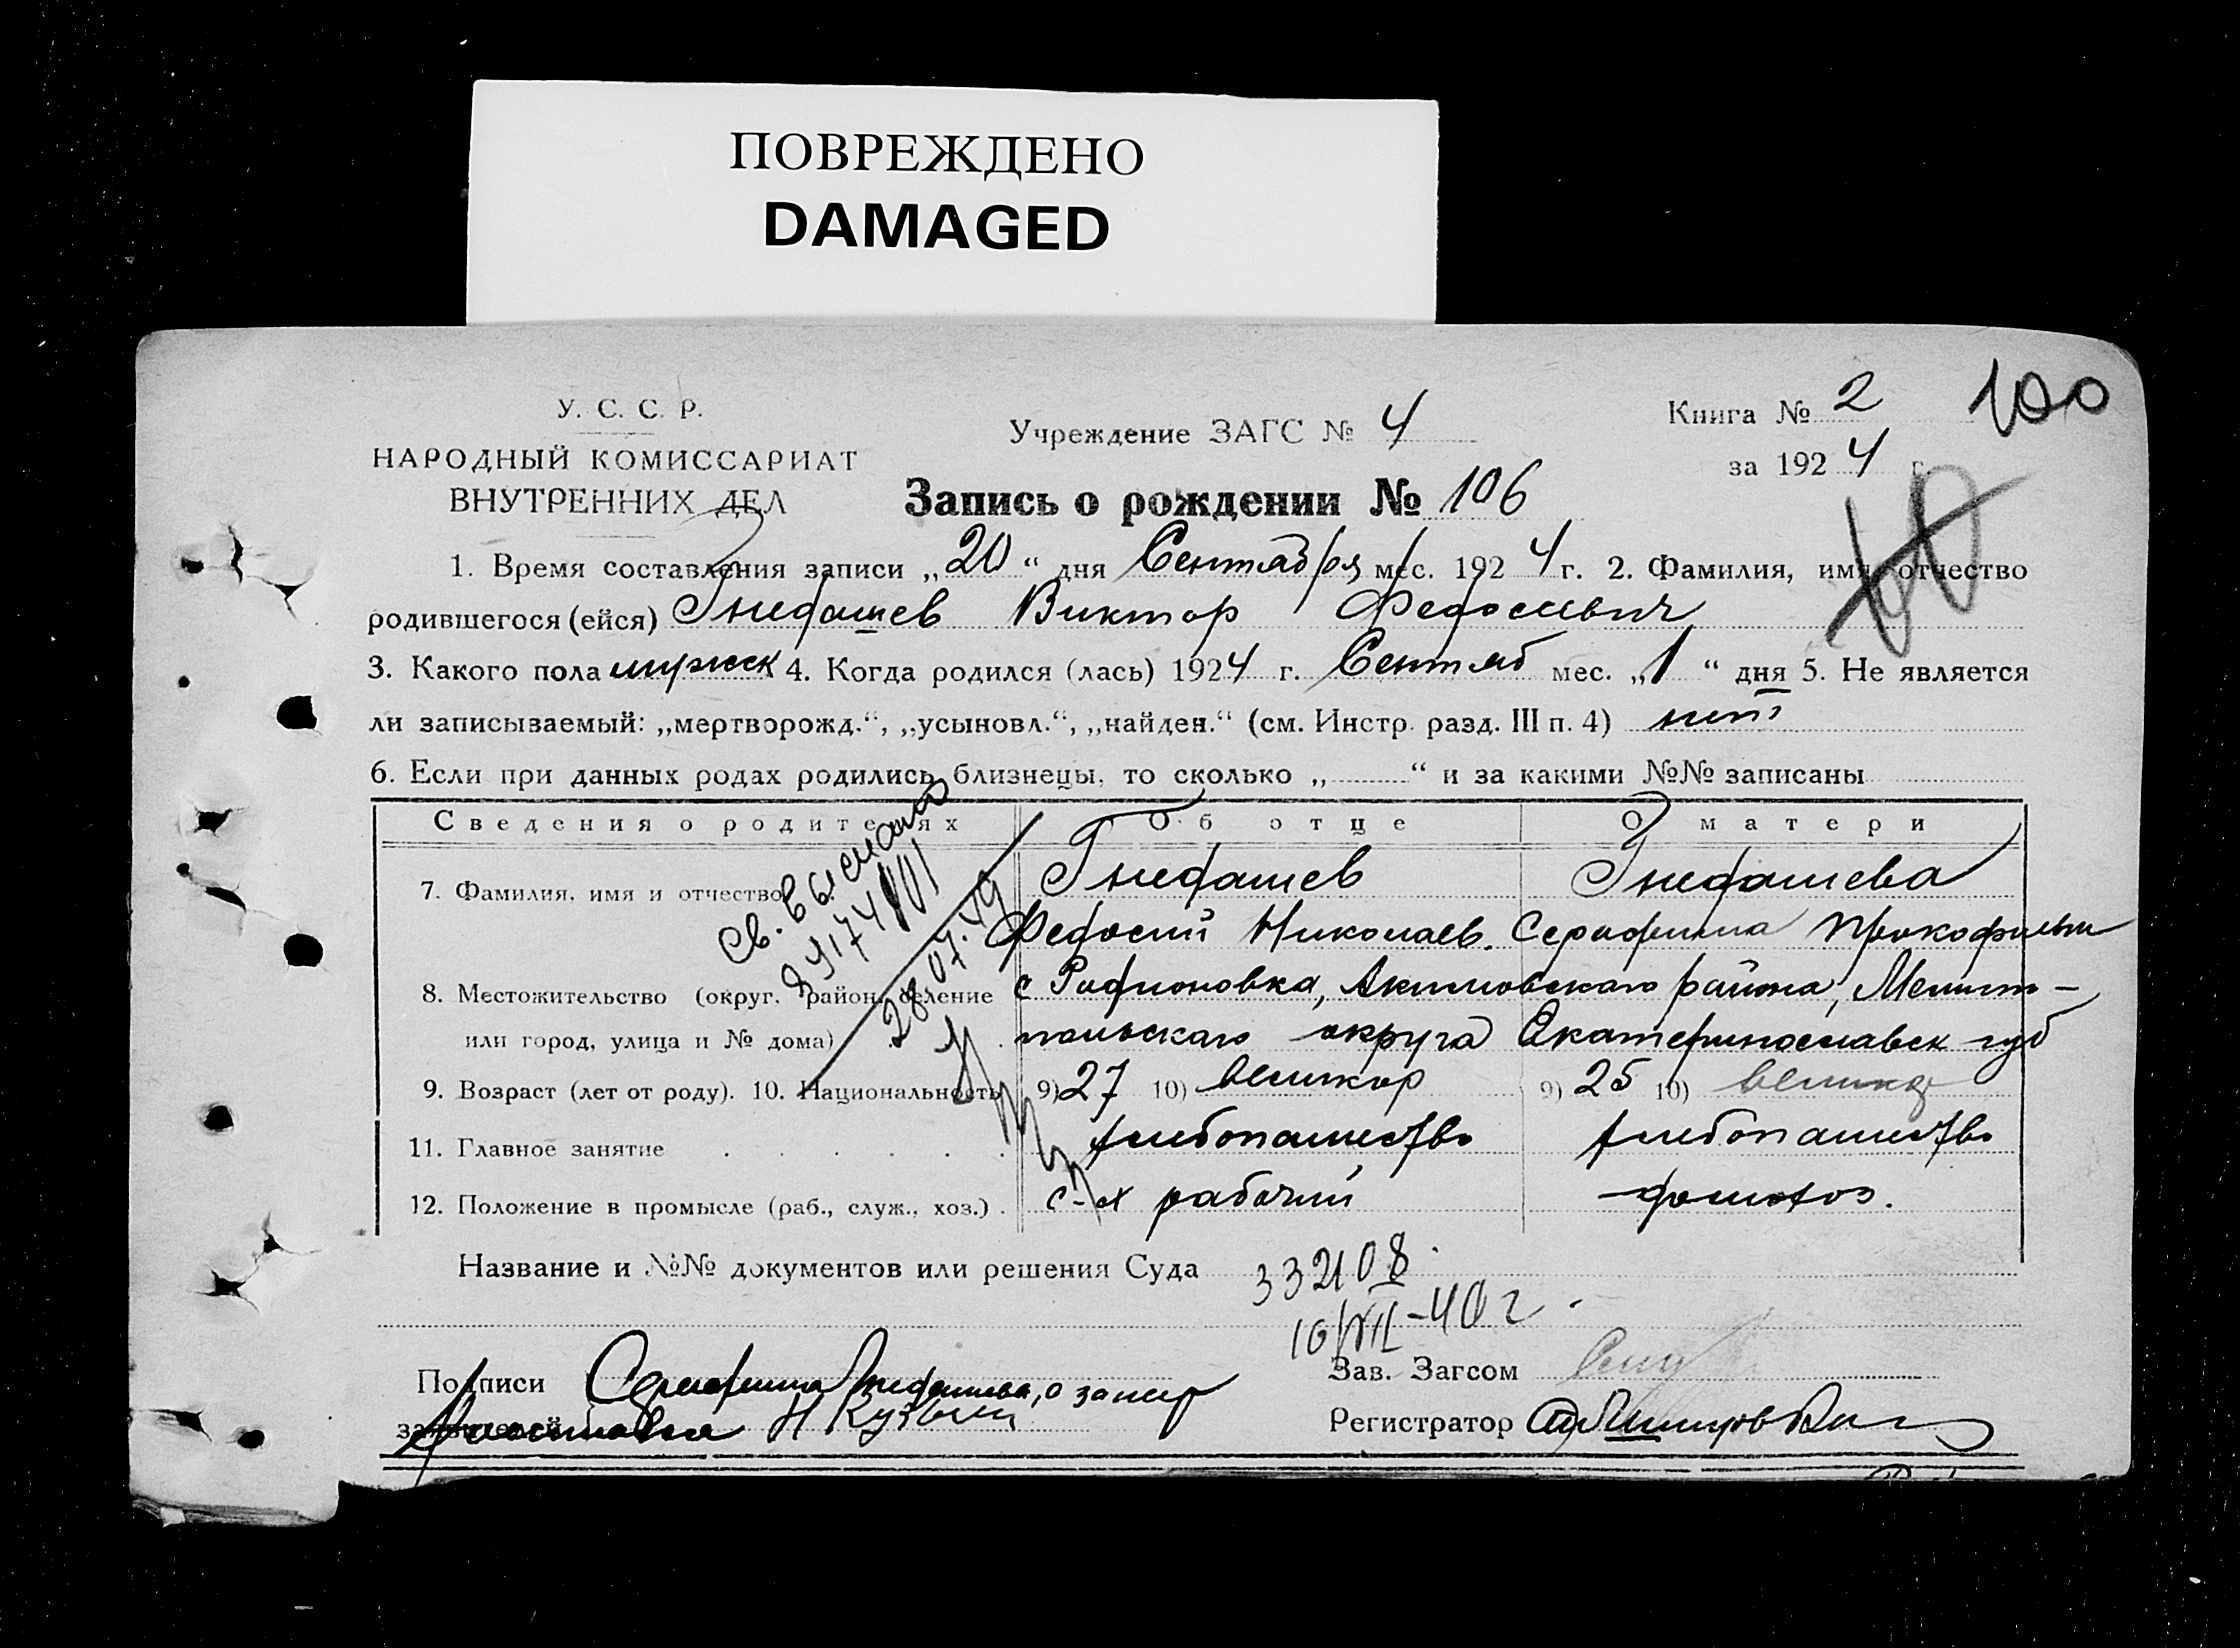 ПОВРЕЖДЕНО
DAMAGED
У. С. С. Р.
НАРОДНЫЙ КОМИССАРИАТ
ВНУТРЕННИХ ДЕЛ
Учреждение ЗАГС № 4
Книга № 2 100
за 1924 г.
Запись о рождении № 106
1. Время составления записи „20“ дня Сентября мес. 1924 г. 2. Фамилия, имя, отчество
родившегося (ейся) Гнедашев Виктор Федосиевич
3. Какого пола мужск 4. Когда родился (лась) 1924 г. Сентяб мес. „1“ дня 5. Не является
ли записываемый: „мертворожд.“, „усыновл.“, „найден.“ (см. Инстр. разд. III п. 4) нет
6. Если при данных родах родились близнецы, то сколько „ “ и за какими №№ записаны
Сведения о родителях Об отце О матери
7. Фамилия, имя и отчество Гнедашев Гнедашева
Федосий Николаев. Серафима Прокофьевн
8. Местожительство (округ, район, селение с Родионовка, Акимовского района, Мелит-
или город, улица и № дома) польского округа Екатеринославск губ
9. Возраст (лет от роду). 10. Национальность 9) 27 10) великор 9) 25 10) великор
11. Главное занятие хлебопашество хлебопашество
12. Положение в промысле (раб., служ., хоз.) с-х рабочий домохоз.
Св. выслано
28.07.49
Название и №№ документов или решения Суда 332108
10/VII-40 г.
Подписи Серафима Гнедашева, о
заявителей Н
Зав. Загсом
Регистратор